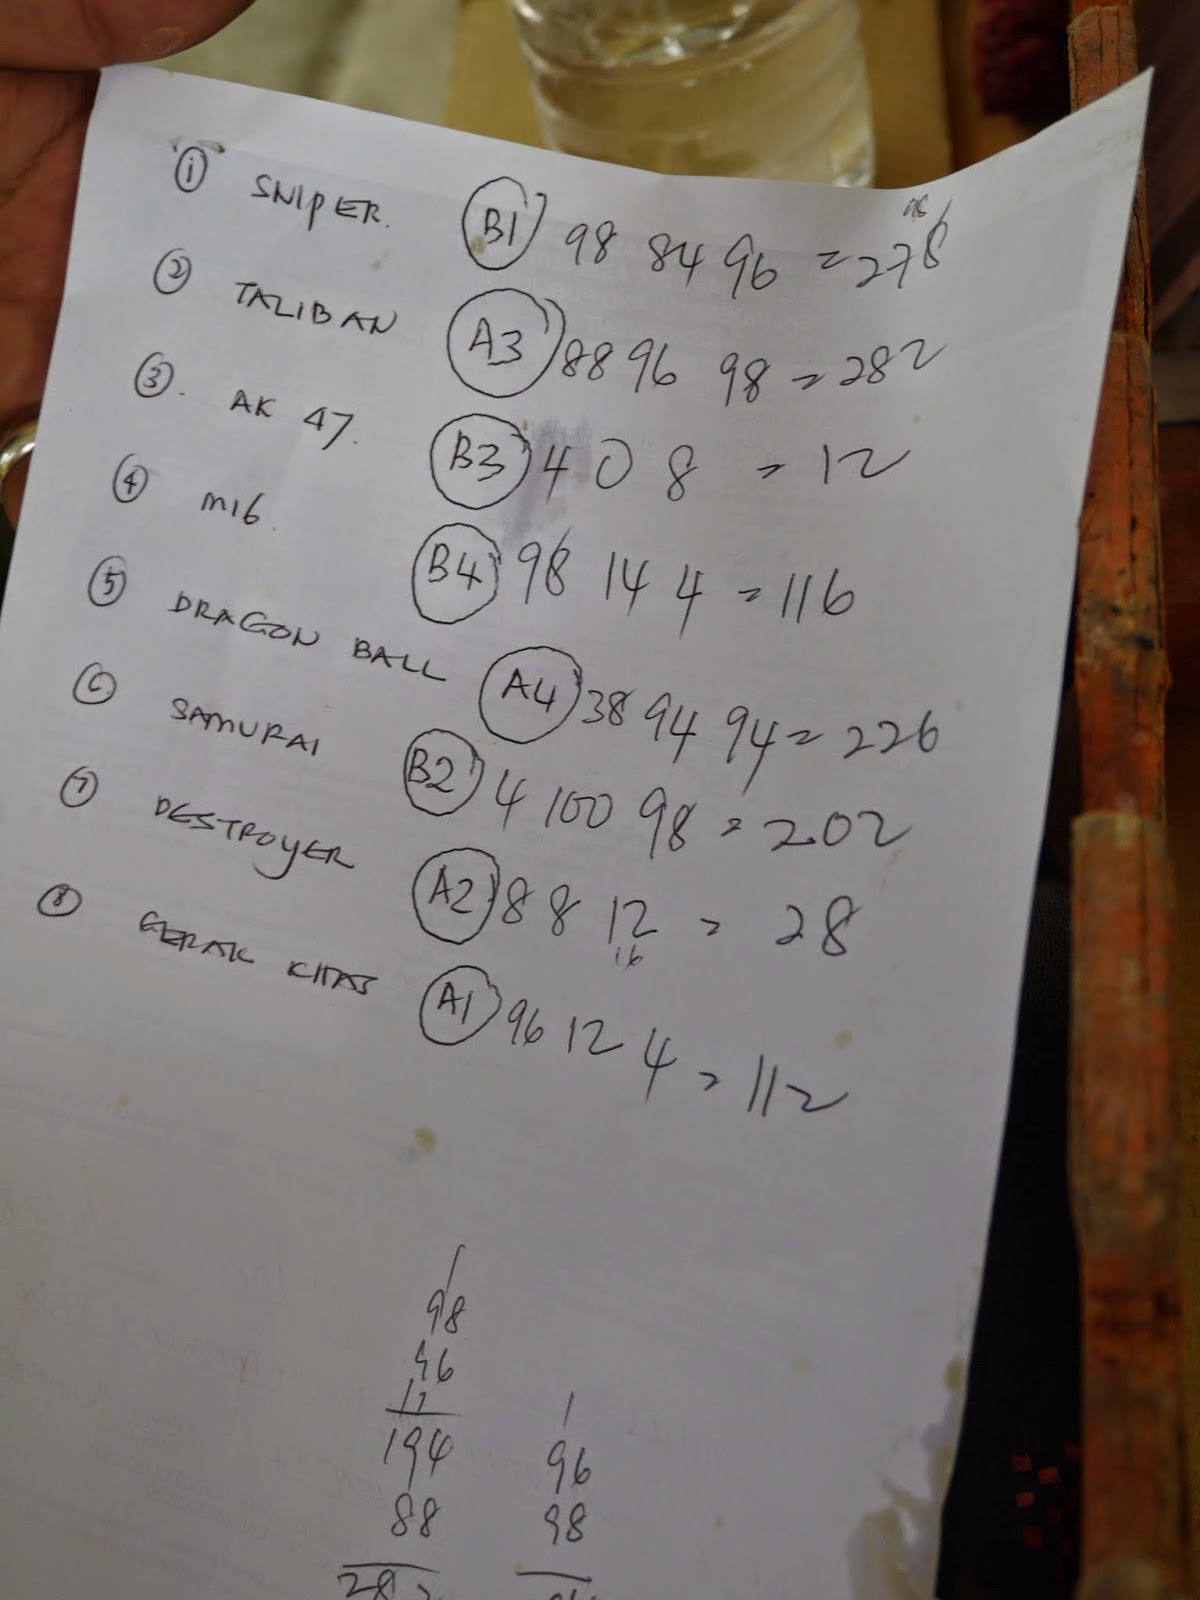 ① SNIPER. B1 98 84 96 = 278
② TALIBAN A3 88 96 98 = 282
③. AK 47. B3 4 0 8 = 12
④ M16. B4 98 14 4 = 116
⑤ DRAGON BALL A4 38 94 94 = 226
⑥ SAMURAI B2 4 100 98 = 202
⑦ DESTROYER A2 8 8 12 = 28
16
⑧ GERAK KHAS A1 96 12 4 = 112
98
96
194
88
282
1
96
98